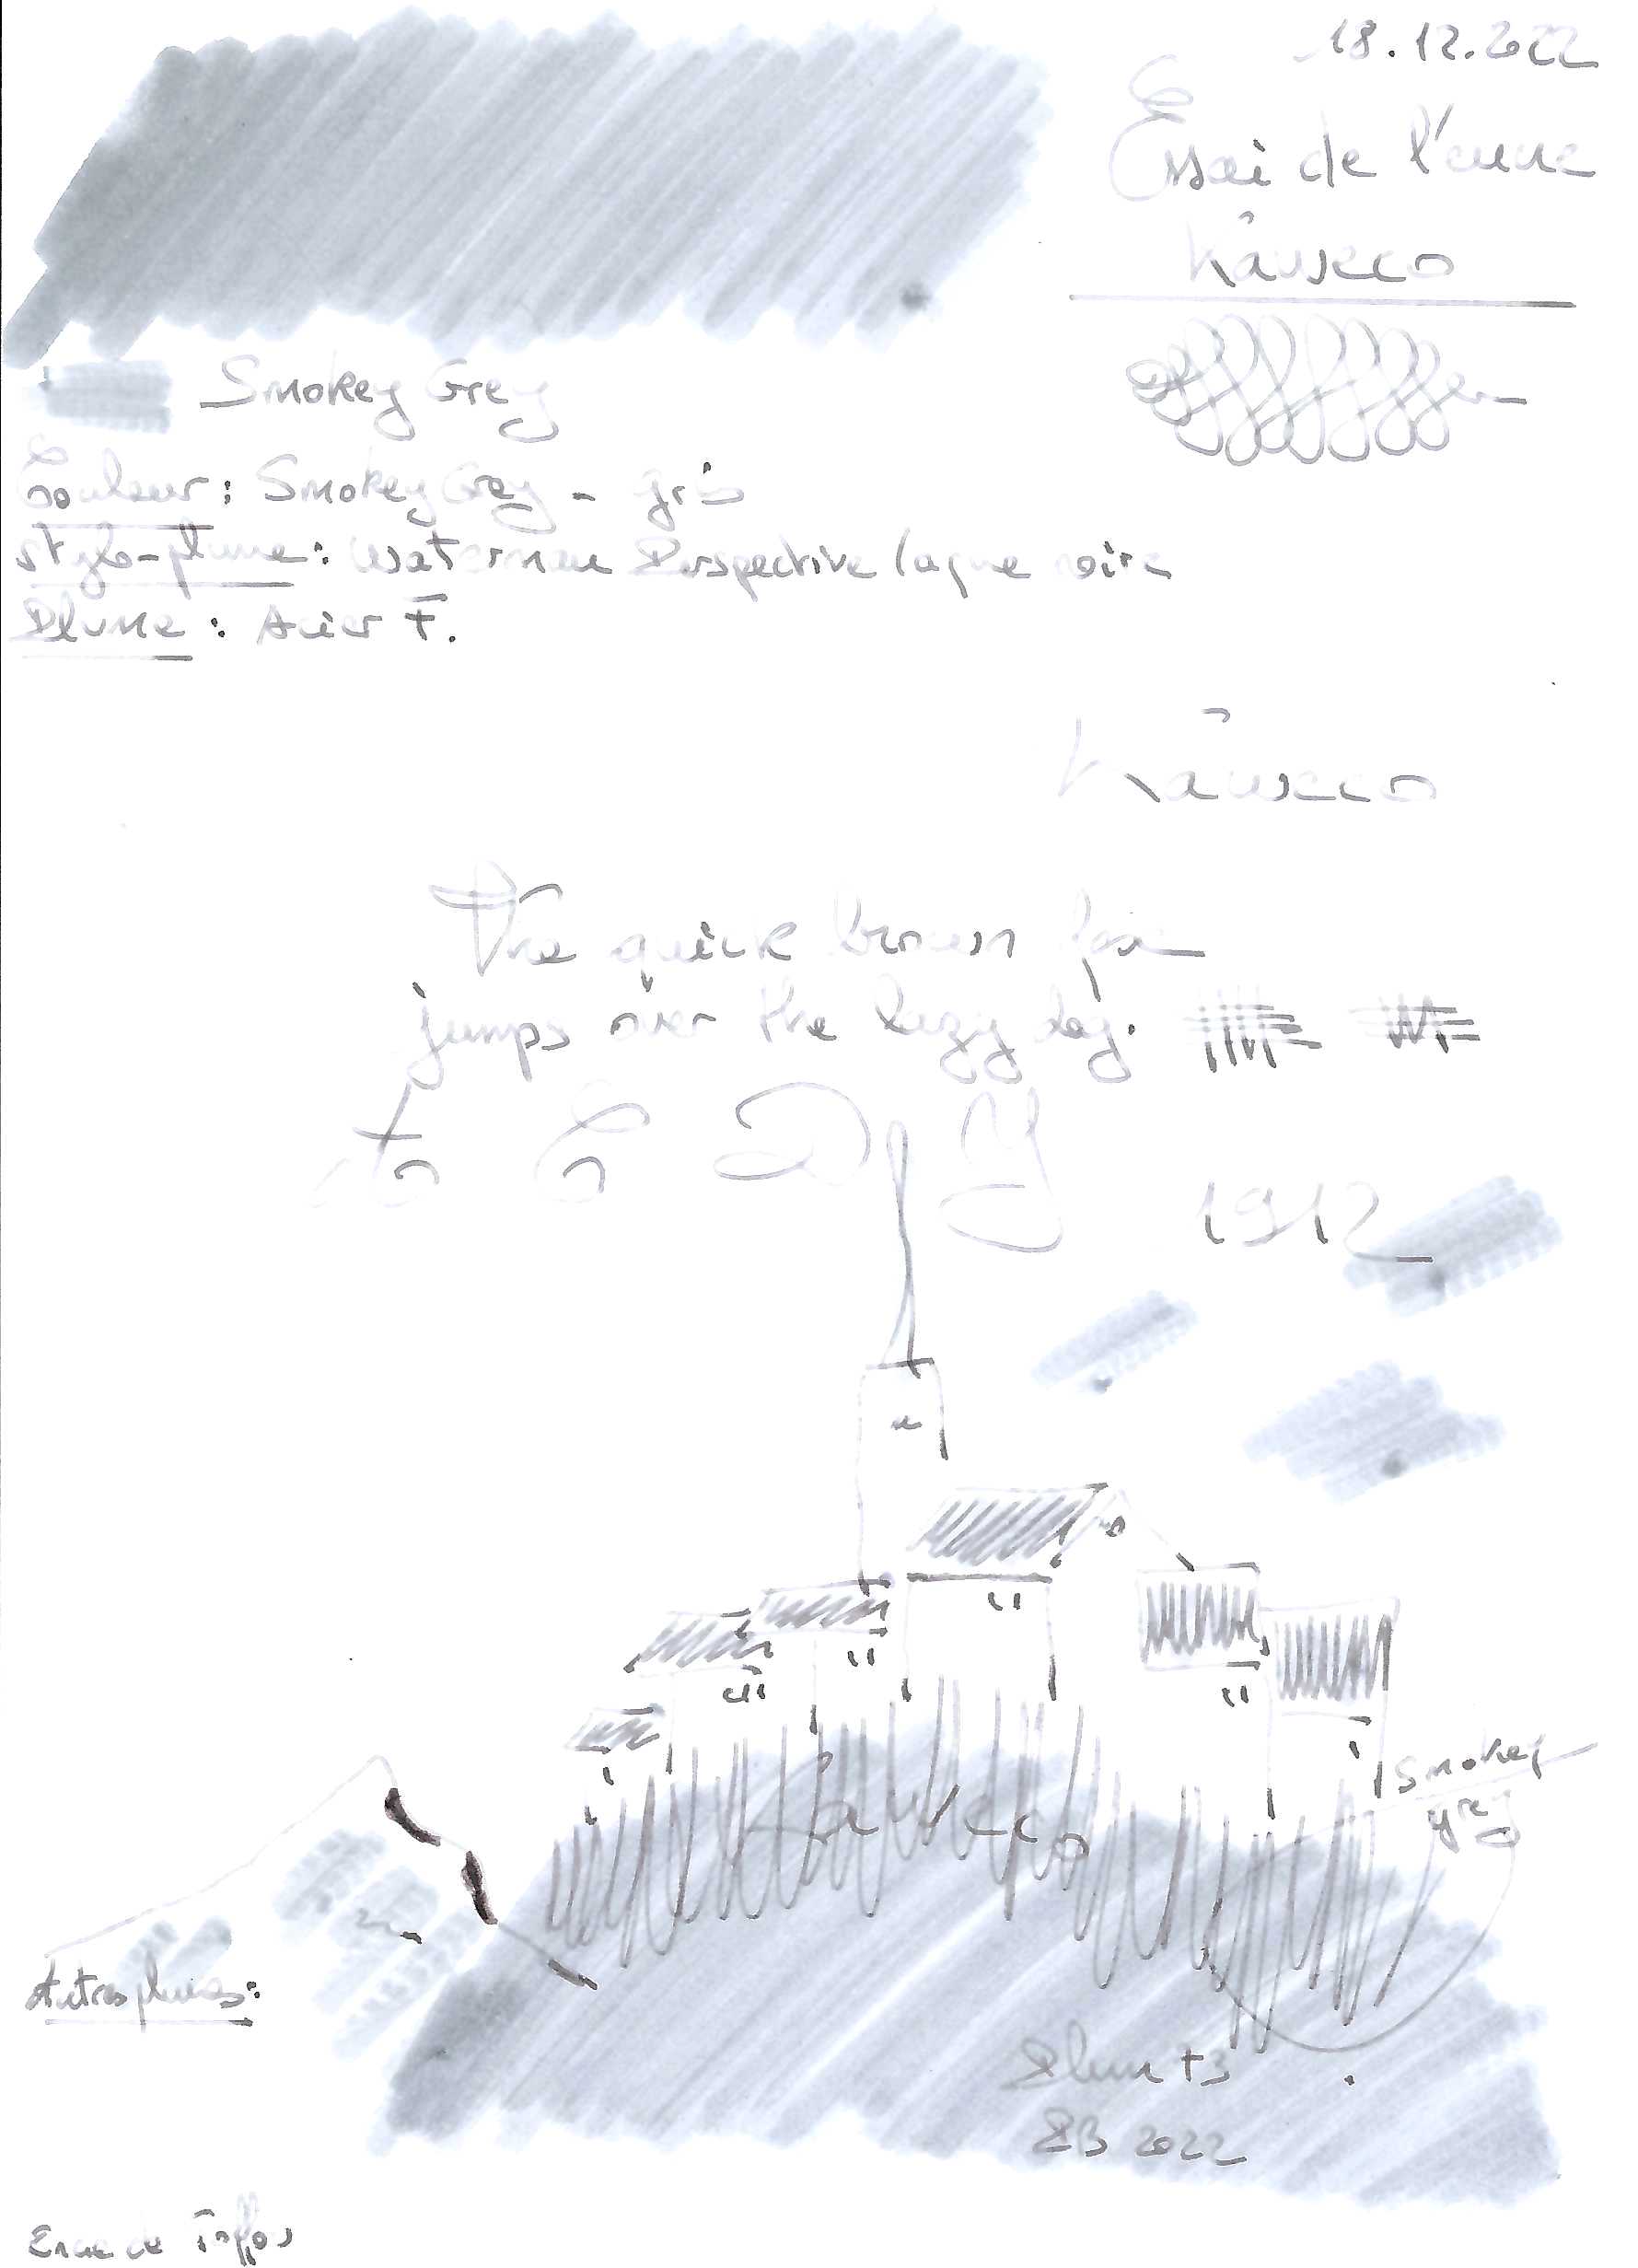 18.12.2022
Essai de l'encre
Kaweco
Smokey Grey
Couleur : Smokey Grey - gris
Stylo-plume : Waterman Perspective laque noire
Plume : Acier F.
Kaweco
The quick brown fox
jumps over the lazy dog.
1912
Kaweco
Smokey
grey
Autres plumes :
2022
Encre de